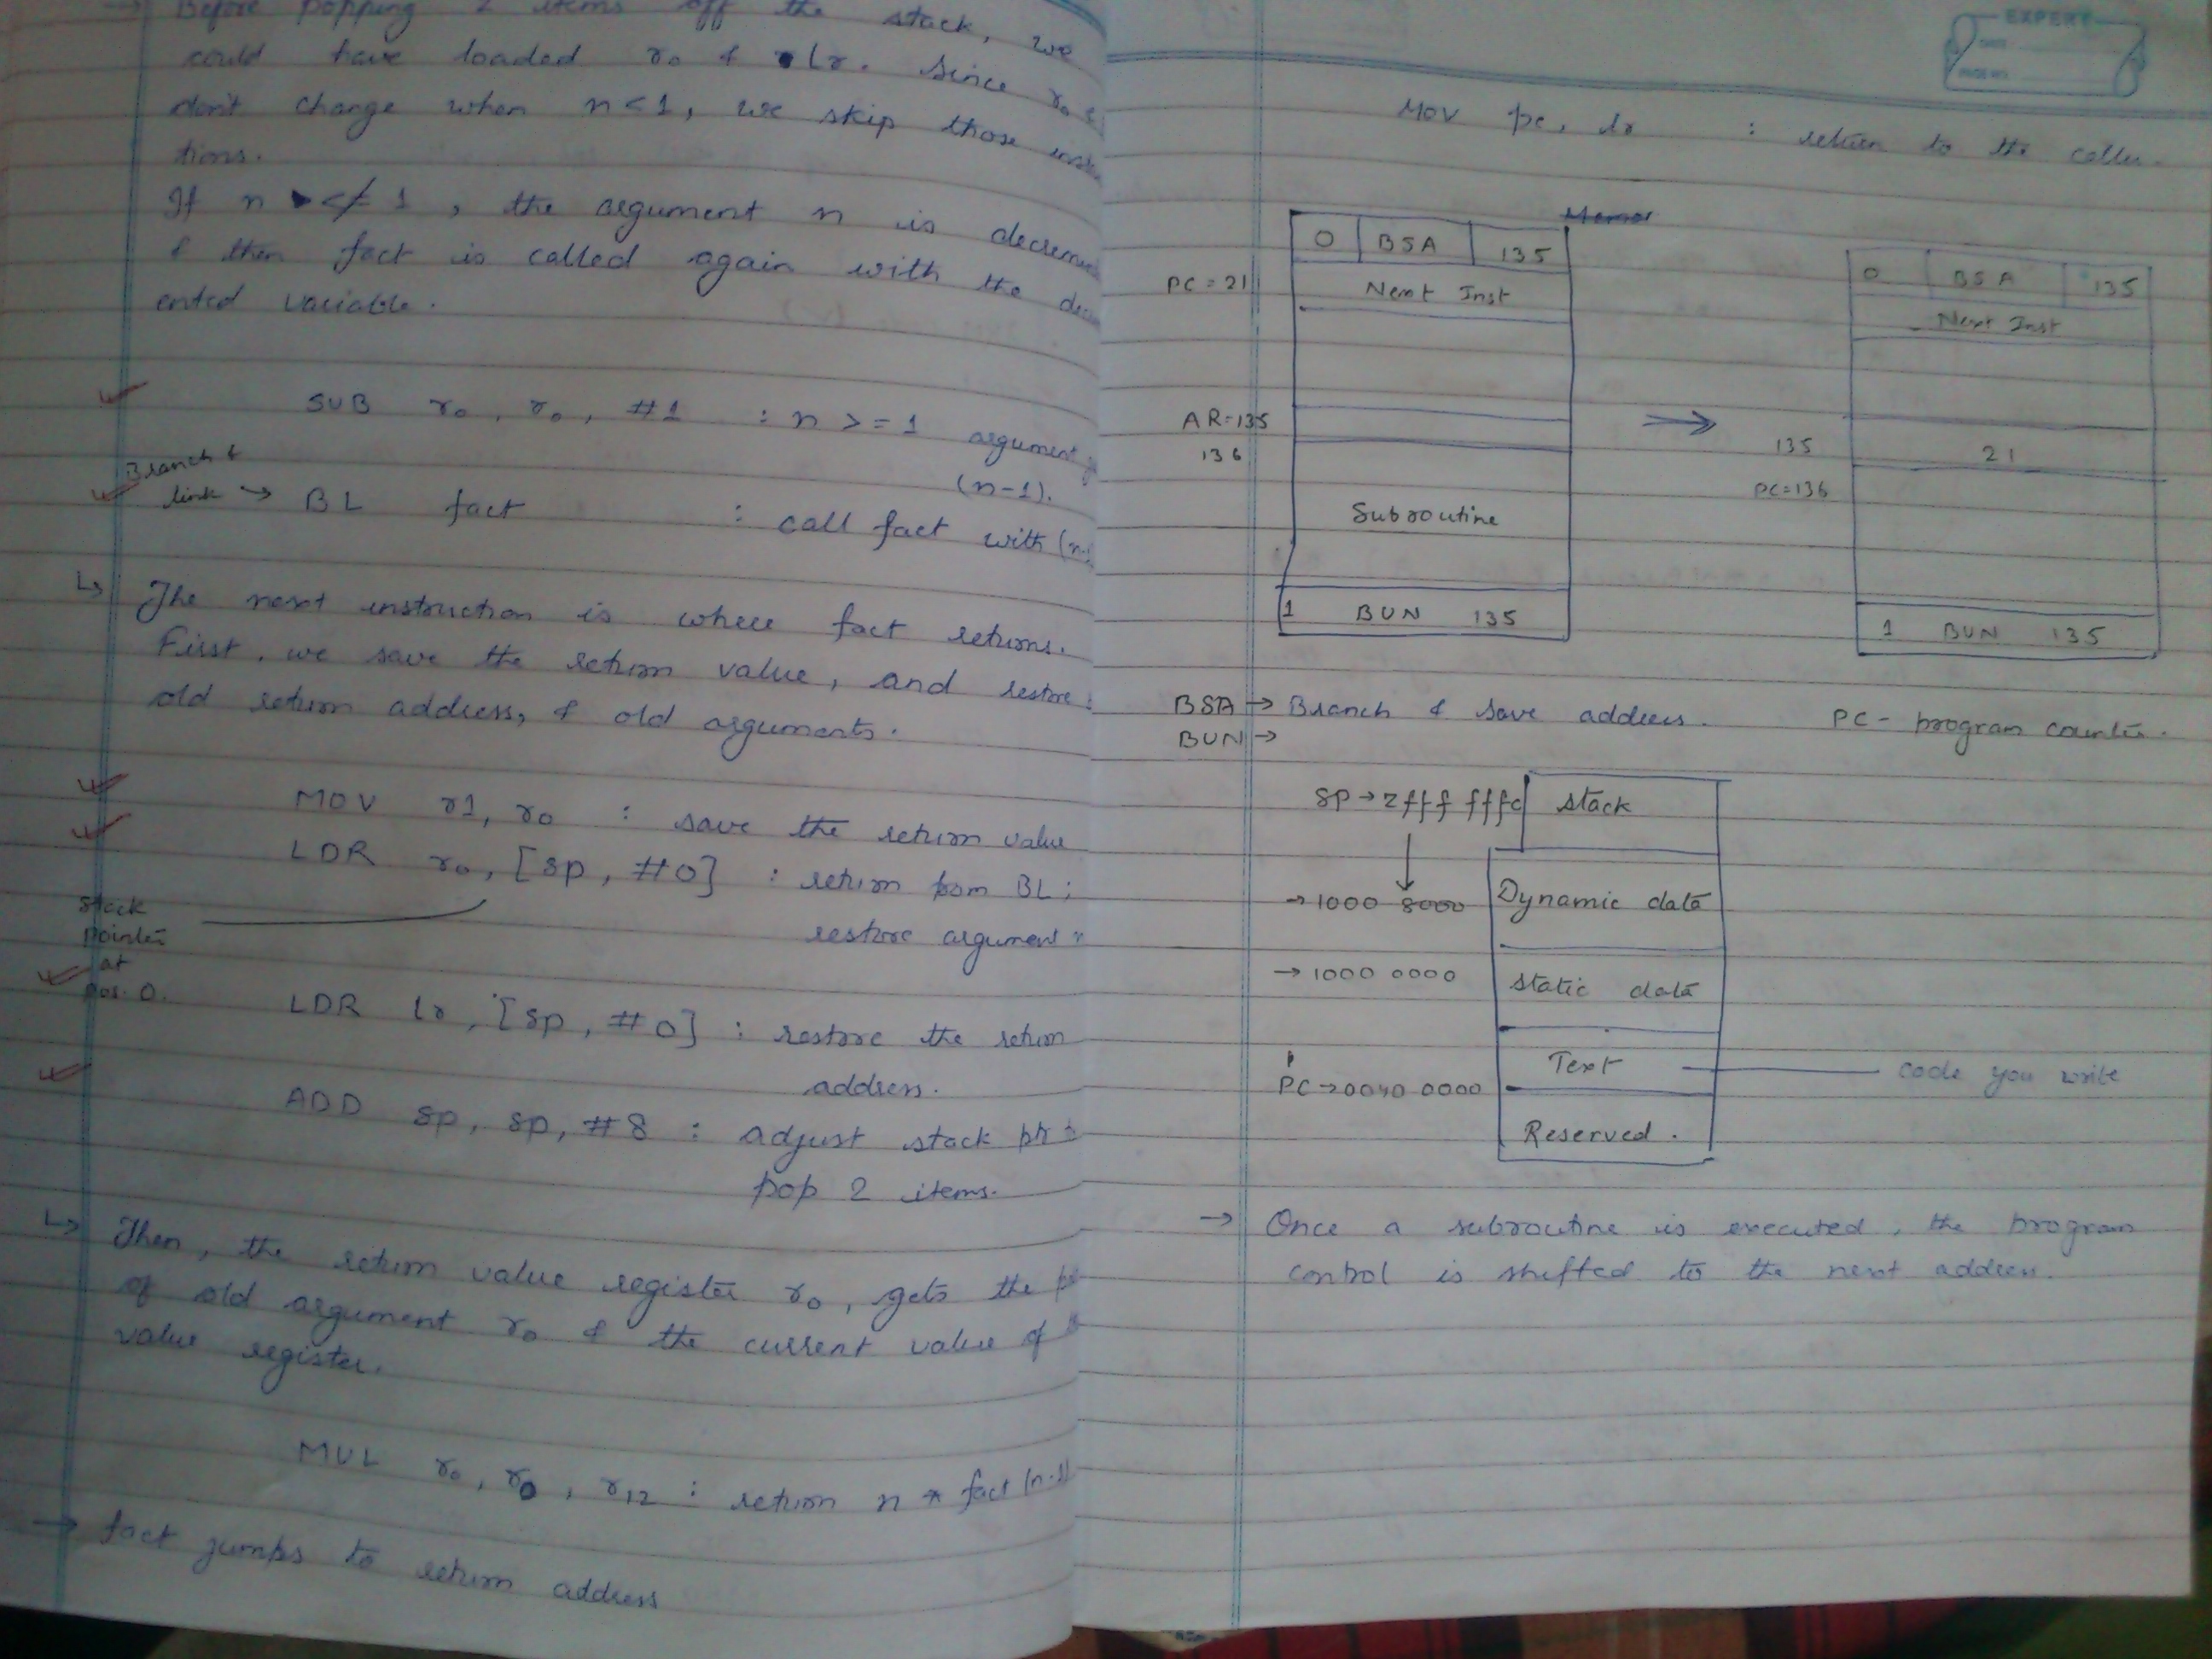 → Before popping 2 items off the stack, we
could have loaded r0 & lr. Since r0 &
don't change when n<1, we skip those inst
tions.
If n </ 1 , the argument n is decrem
& then fact is called again with the dec
ented variable.
SUB r0, r0, #1 : n >= 1 argument
(n-1).
Branch &
link → BL fact : call fact with (n-
↳ The next instruction is where fact returns.
First, we save the return value, and restore
old return address, & old arguments.
MOV r1, r0 : save the return value
LDR r0, [sp, #0] : return from BL;
restore argument n
Stack
pointer
at
pos. 0.
LDR lr, [sp, #0] : restore the return
address.
ADD sp, sp, #8 : adjust stack ptr
pop 2 items.
↳ Then, the return value register r0, gets the
of old argument r0 & the current value of
value register.
MUL r0, r0, r12 : return n * fact (n-1)
→ fact jumps to return address
EXPERT
DATE
PAGE NO.
MOV pc, lr : return to the caller.
Memor
0 BSA 135
PC=21 Next Inst
AR=135
136
Subroutine
1 BUN 135
⇒
0 BSA 135
Next Inst
135 21
PC=136
1 BUN 135
BSA → Branch & save address. PC - program counter.
BUN →
SP → 7fff fffc Stack
→ 1000 8000 Dynamic data
→ 1000 0000 Static data
Text code you write
PC → 0040 0000
Reserved.
→ Once a subroutine is executed, the program
control is shifted to the next address.